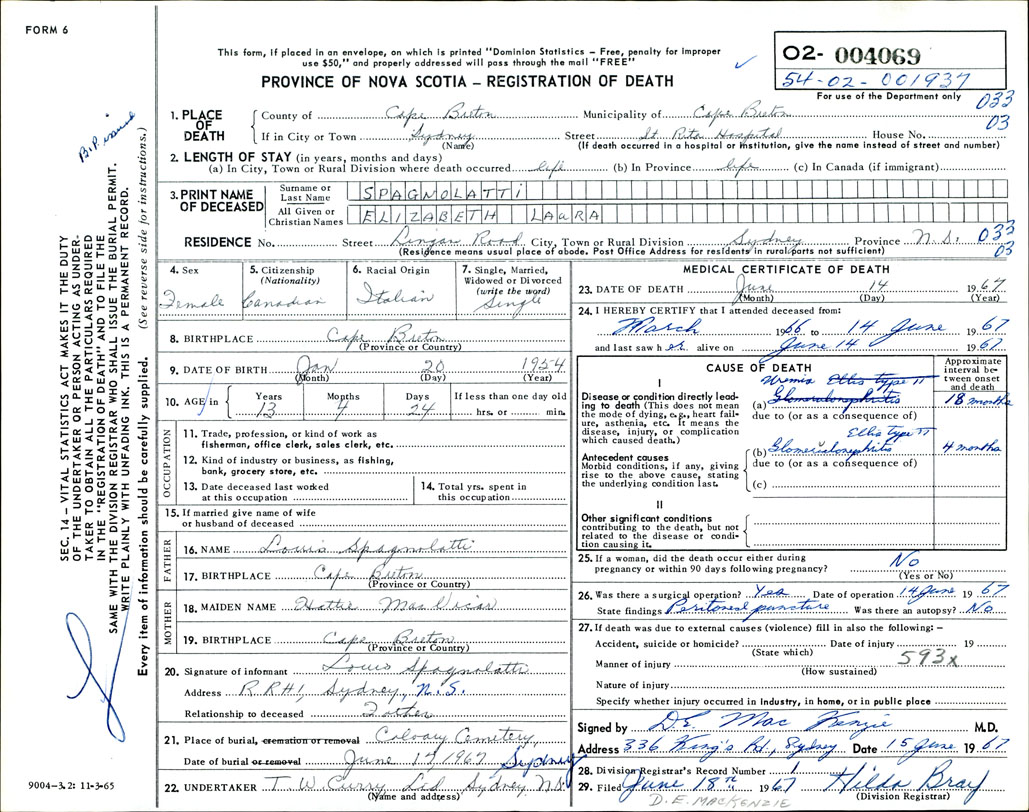 FORM 6
This form, if placed in an envelope, on which is printed "Dominion Statistics – Free, penalty for improper
use $50," and properly addressed will pass through the mail "FREE"
PROVINCE OF NOVA SCOTIA – REGISTRATION OF DEATH
02- 004069
54-02-001937
For use of the Department only
033
03
1. PLACE OF DEATH
County of Cape Breton Municipality of Cape Breton
If in City or Town Sydney Street St Rita Hospital House No.
(Name) (If death occurred in a hospital or institution, give the name instead of street and number)
2. LENGTH OF STAY (in years, months and days)
(a) In City, Town or Rural Division where death occurred life (b) In Province life (c) In Canada (if immigrant)
3. PRINT NAME OF DECEASED
Surname or Last Name SPAGNOLATTI
All Given or Christian Names ELIZABETH LAURA
RESIDENCE No. Street Lingan Road City, Town or Rural Division Sydney Province N.S. 033
03
(Residence means usual place of abode. Post Office Address for residents in rural parts not sufficient)
4. Sex
Female
5. Citizenship
(Nationality)
Canadian
6. Racial Origin
Italian
7. Single, Married,
Widowed or Divorced
(write the word)
Single
8. BIRTHPLACE Cape Breton
(Province or Country)
9. DATE OF BIRTH Jan 20 1954
(Month) (Day) (Year)
10. AGE in
Years Months Days If less than one day old
13 4 24 hrs. or min.
OCCUPATION
11. Trade, profession, or kind of work as
fisherman, office clerk, sales clerk, etc.
12. Kind of industry or business, as fishing,
bank, grocery store, etc.
13. Date deceased last worked
at this occupation
14. Total yrs. spent in
this occupation
15. If married give name of wife
or husband of deceased
FATHER
16. NAME Louis Spagnolatti
17. BIRTHPLACE Cape Breton
(Province or Country)
MOTHER
18. MAIDEN NAME Hattie MacVicar
19. BIRTHPLACE Cape Breton
(Province or Country)
20. Signature of informant Louis Spagnolatti
Address R R #1, Sydney, N.S.
Relationship to deceased Father
21. Place of burial, cremation or removal Calvary Cemetery,
Date of burial or removal June 17 1967 Sydney
22. UNDERTAKER T. W. Curry Ltd Sydney N.S.
(Name and address)
MEDICAL CERTIFICATE OF DEATH
23. DATE OF DEATH June 14 1967
(Month) (Day) (Year)
24. I HEREBY CERTIFY that I attended deceased from:
March 1966 to 14 June 1967
and last saw her alive on June 14 1967
CAUSE OF DEATH
Approximate interval between onset and death
I
Disease or condition directly leading to death (This does not mean the mode of dying, e.g., heart failure, asthenia, etc. It means the disease, injury, or complication which caused death.)
Uremia Ellis type II
(a) Glomerulonephritis 18 months
due to (or as a consequence of)
Ellis type II
(b) Glomerulonephritis 4 months
due to (or as a consequence of)
(c)
Antecedent causes
Morbid conditions, if any, giving rise to the above cause, stating the underlying condition last.
II
Other significant conditions
contributing to the death, but not related to the disease or condition causing it.
25. If a woman, did the death occur either during
pregnancy or within 90 days following pregnancy? No
(Yes or No)
26. Was there a surgical operation? Yes Date of operation 14 June 1967
State findings Peritoneal puncture Was there an autopsy? No
27. If death was due to external causes (violence) fill in also the following: –
Accident, suicide or homicide? Date of injury 19
(State which)
593x
Manner of injury
(How sustained)
Nature of injury
Specify whether injury occurred in industry, in home, or in public place
Signed by D.E. MacKenzie M.D.
Address 336 King's Rd, Sydney Date 15 June 1967
28. Division Registrar's Record Number 1
29. Filed June 18th 1967 Hilda Bray
(Division Registrar)
D.E. MACKENZIE
SEC. 14 – VITAL STATISTICS ACT MAKES IT THE DUTY
OF THE UNDERTAKER OR PERSON ACTING AS UNDER-
TAKER TO OBTAIN ALL THE PARTICULARS REQUIRED
IN THE "REGISTRATION OF DEATH" AND TO FILE THE
SAME WITH THE DIVISION REGISTRAR WHO SHALL ISSUE THE BURIAL PERMIT.
WRITE PLAINLY WITH UNFADING INK. THIS IS A PERMANENT RECORD.
Every item of information should be carefully supplied. (See reverse side for instructions.)
B.P. issued
9004-3.2: 11-3-65